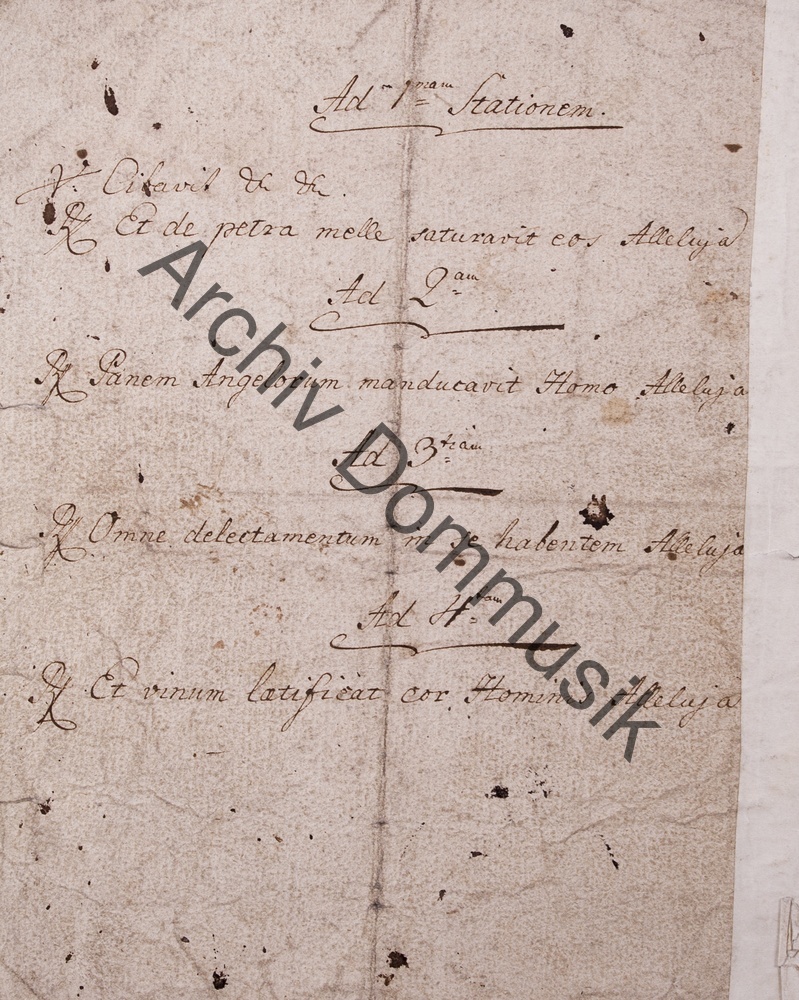 Ad 1mam Stationem.
℣. Cibavit &c &c.
℟ Et de petra melle saturavit eos Alleluja
Ad 2am
℟ Panem Angelorum manducavit Homo Alleluja
Ad 3tiam
℟ Omne delectamentum in se habentem Alleluja
Ad 4tam
℟ Et vinum lætificat cor Hominis Alleluja
Archiv Dommusik